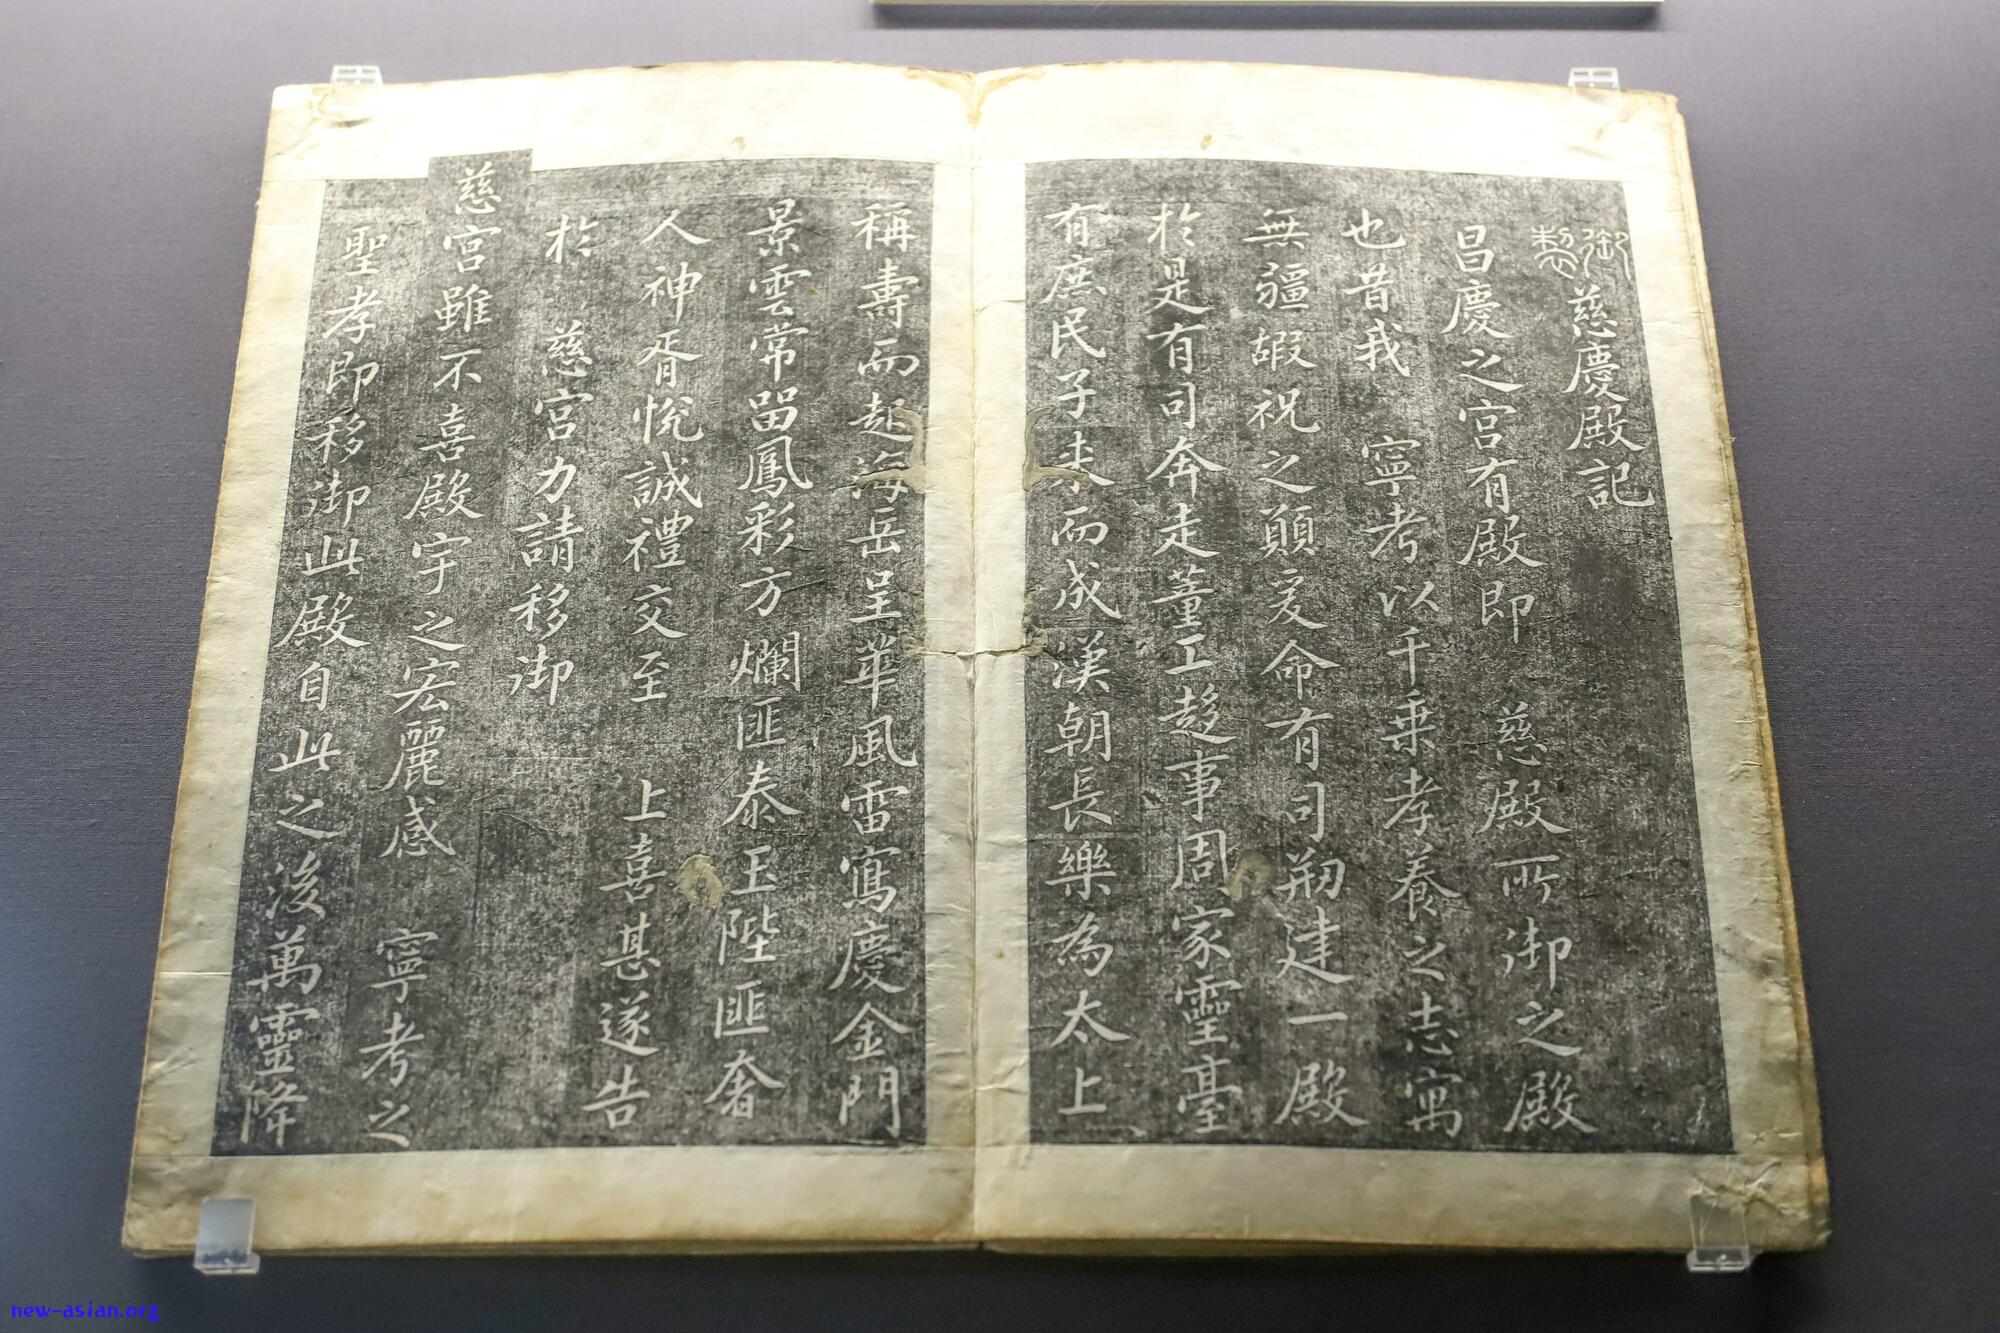 御製慈慶殿記
昌慶之宮有殿即 慈殿所御之殿
也昔我 寧考以千乗孝養之志寓
無疆嘏祝之願爰命有司刱建一殿
於是有司奔走董工趍事周家靈臺
有庶民子来而成漢朝長樂為太上
稱壽而起海岳呈華風雷寫慶金門
景雲常留鳳彩方爛匪泰玉陛匪奢
人神胥悅誠禮交至 上喜甚遂告
於 慈宮力請移御
慈宮雖不喜殿宇之宏麗感 寧考之
聖孝即移御此殿自此之後萬靈降
new-asian.org